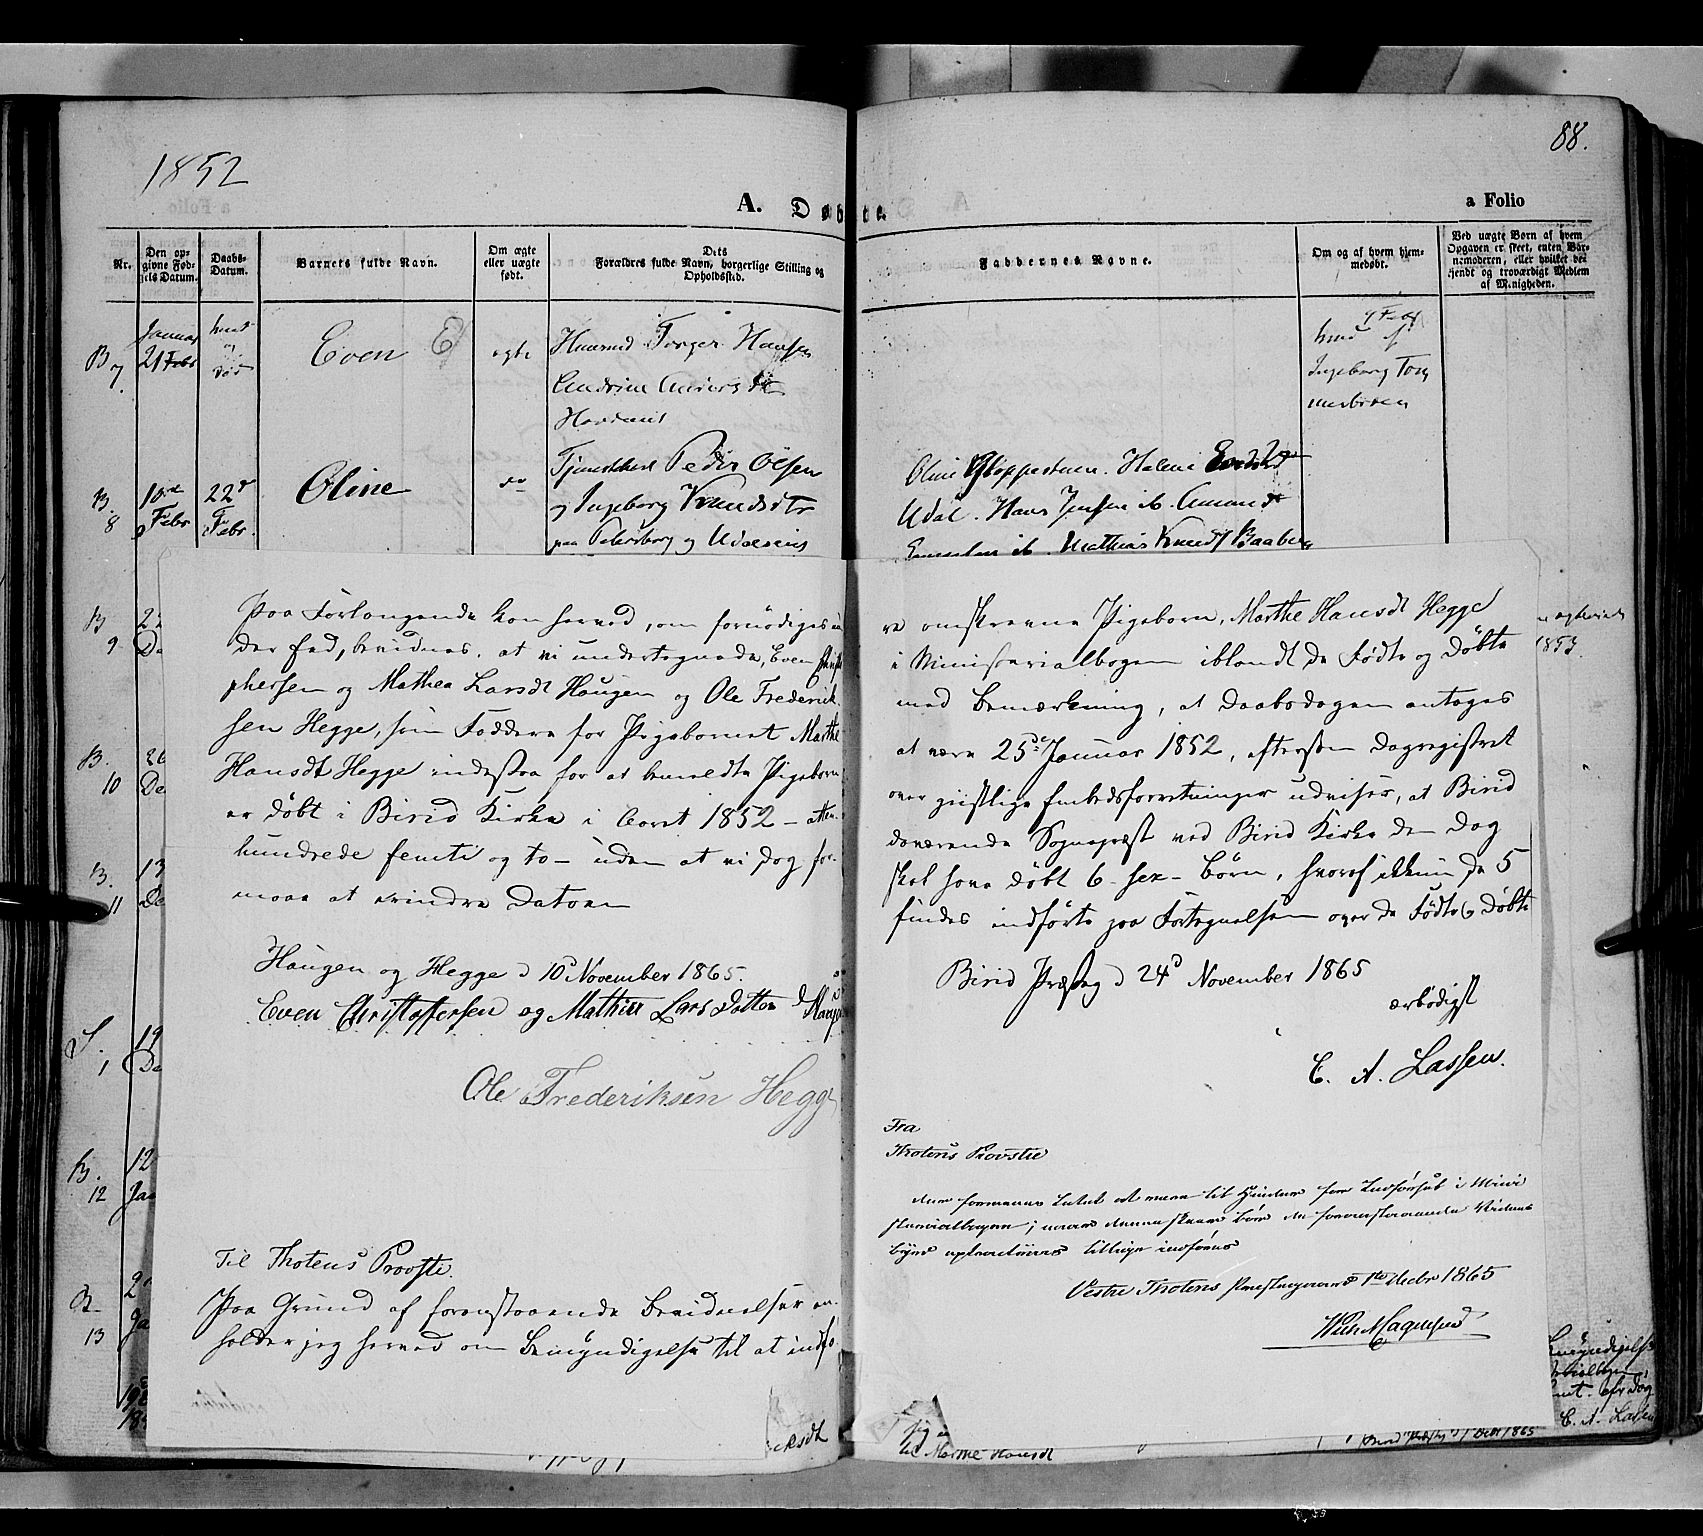 88.
1852
A. Døbte.
a Folio
Nr.
Den opgivne Fødsels Datum.
Daabs-Datum.
Barnets fulde Navn.
Om ægte eller uægte født.
Dets Forældres fulde Navn, borgerlige Stilling og Opholdssted.
Faddernes Navne.
Om og af hvem hjemmedøbt.
Ved uægte Børn af hvem Opgaven er skeet, enten Barnemoderen, eller hvilket bekjendt og troværdigt Medlem af Menigheden.
B 7.
Januar
21 Febr
Even E
ægte
Huusmd Torger Hansen
Andrine Andersdt
hmd af
Ingeborg
B. 8
10de Febr
22d Febr.
Oline
do
Tjenestkarl Peder Olsen
og Ingeborg Knudsdtr
paa Petersborg og
Oline Gloppestuen. Helene
Udal. Hans Jensen ib. Amund
ib. Mathias Knuds Baaberg
B 9
B. 10
B. 11
S. 1
B. 12
B. 13
1853
Paa Forlangende kan herved, om fornødiges un-
der Eed, bevidnes, at vi undertegnede, Even Christo-
phersen og Mathea Larsdt Haugen og Ole Frederik-
sen Hegge, som Faddere for Pigebarnet Marthe
Hansdt Hegge indestaa for at bemeldte Pigebarn
er døbt i Birid Kirke i Aaret 1852 – atten-
hundrede femti og to – uden at vi dog for-
maae at erindre Datoen
Haugen og Hegge d 10d November 1865.
Even Christoffersen og Mathia Lars Datter Haugen
Ole Frederiksen Hegge
Til Thotens Provsti.
Paa Grund af foranstaaende Bevidnelser an-
holder jeg herved om Bemyndigelse til at indfø-
re omskrevne Pigebarn, Marthe Hansdt Hegge
i Ministerialbogen iblandt de Fødte og Døbte
med Bemærkning, at Daabsdagen antages
at være 25de Januar 1852, eftersom Dagregistret
over geistlige Embedsforretninger udviser, at Birid
daværende Sognepræst ved Birid Kirke den Dag
skal have døbt 6 – sex – Børn, hvoraf ikkun de 5
findes indførte paa Fortegnelsen over de Fødte og Døbte
Birid Præstg d 24d November 1865
ærbødigst
E. A. Lassen.
Fra
Thotens Provstie
at være til Hinder for Indførsel i Mini-
sterialbogen;
tillige indføres
Vestre Thotens Præstegaard 1ste Decbr 1865
Magnussen
Bemyndigelse
E. A. Lassen
til Marthe Hansdt
Birid Præstg 1865